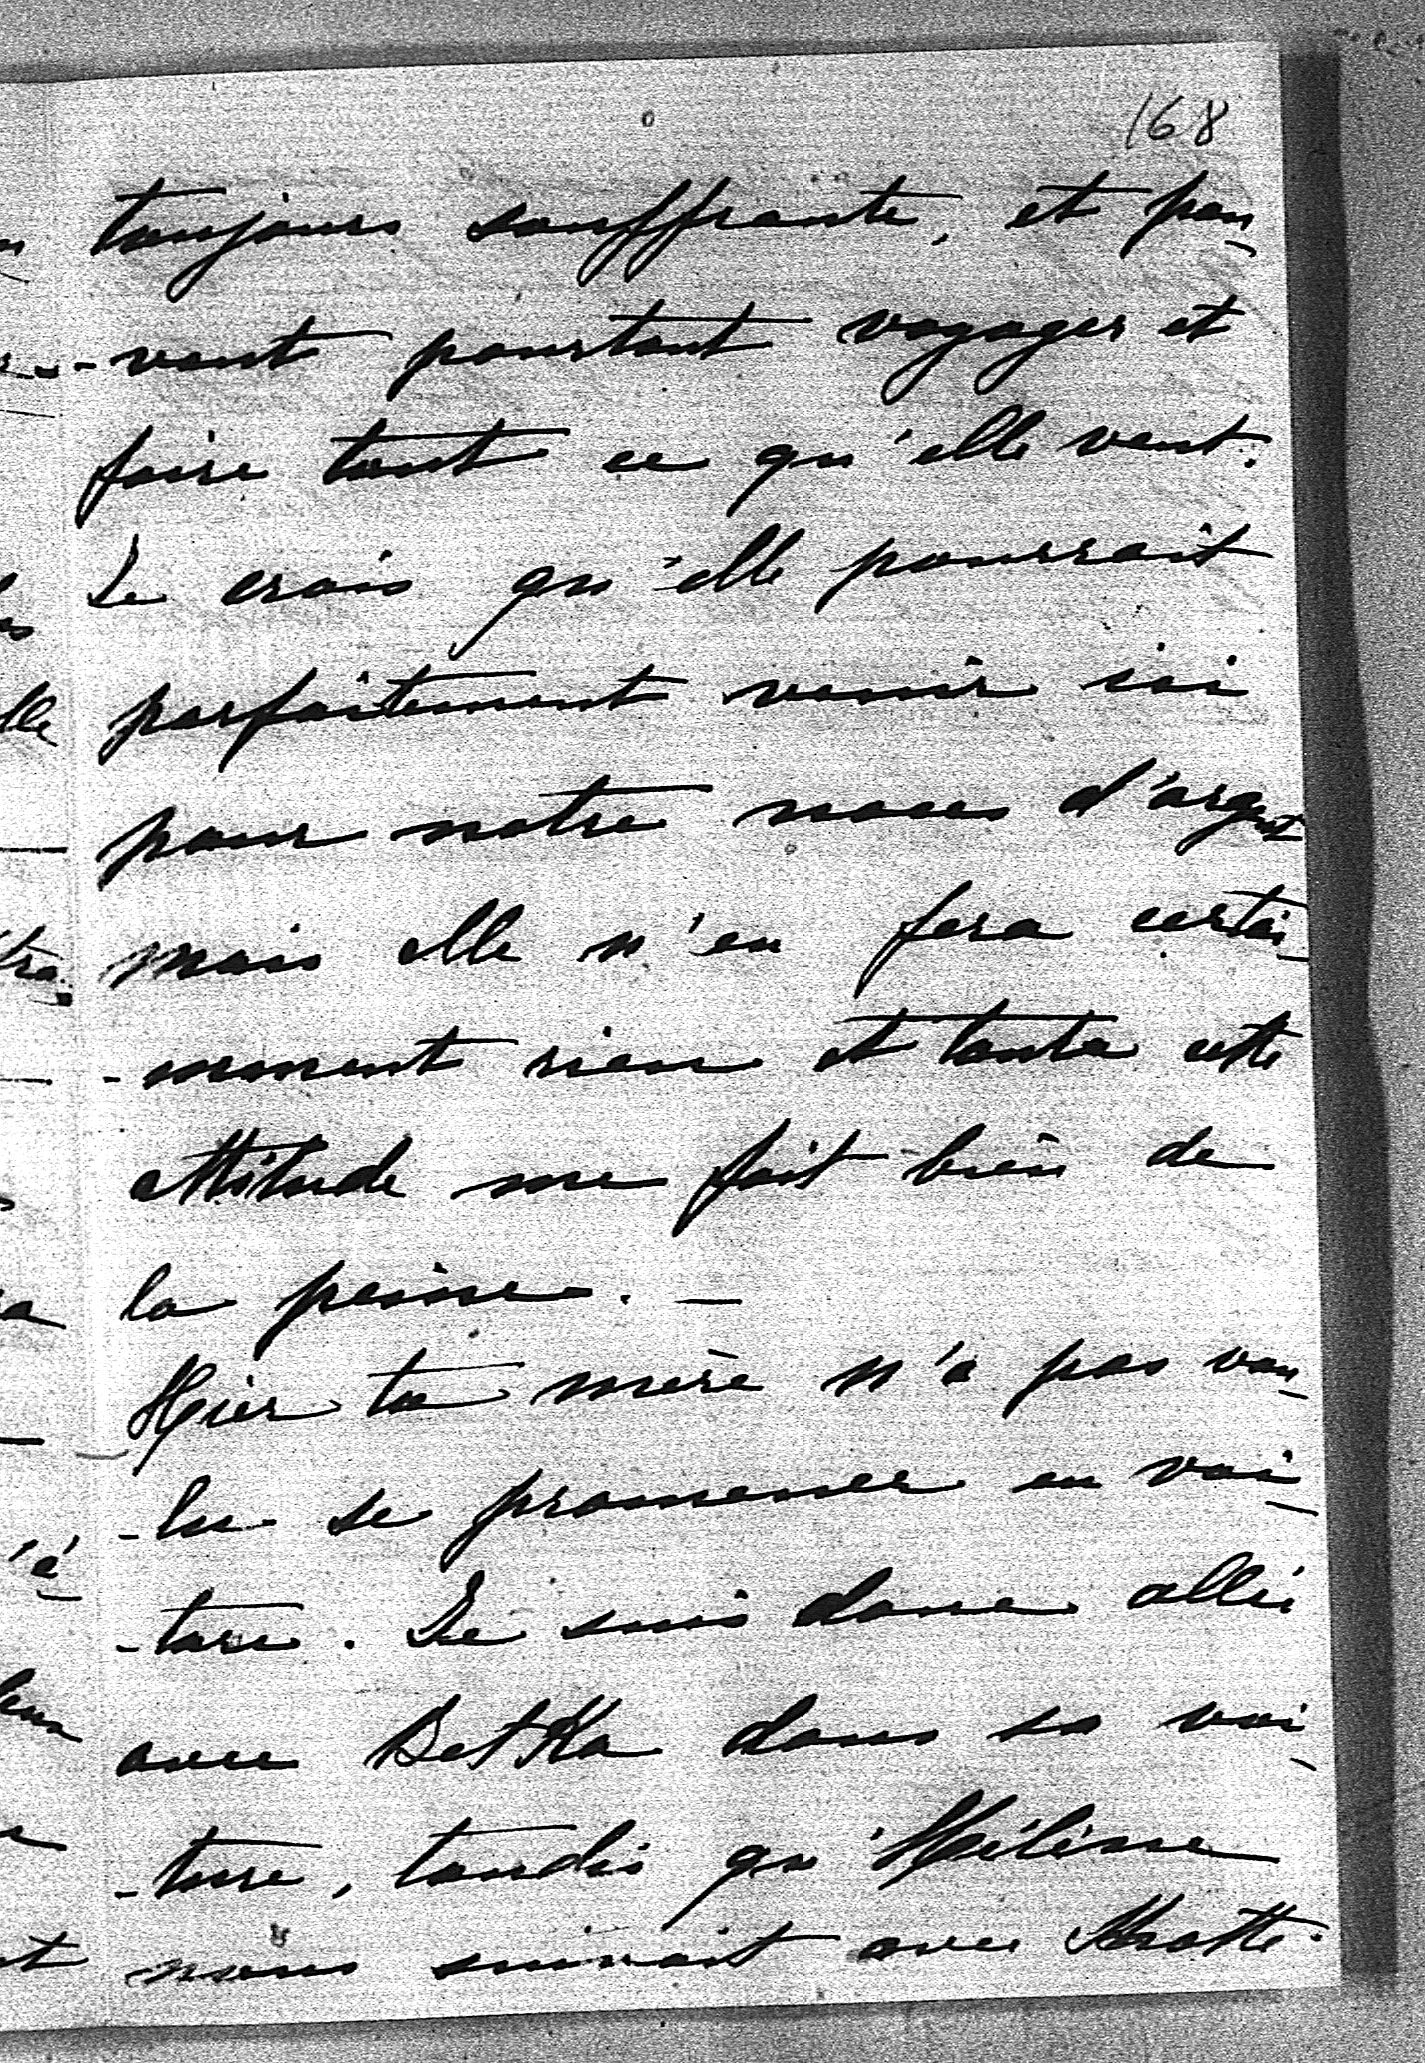 168
toujours souffrante, et pou
-vant pourtant voyager et
faire tout ce qu'elle veut.
Je crois qu'elle pourrait
parfaitement venir ici
pour notre noces d'argent
mais elle n'en fera certai
-nement rien et toute cette
attitude me fait bien de
la peine. —
Hier ta mère n'a pas vou
-lu se promener en voi
-ture. Je suis donc allée
avec Detka dans sa voi
-ture, tandis qu'Hélène
nous suivait avec